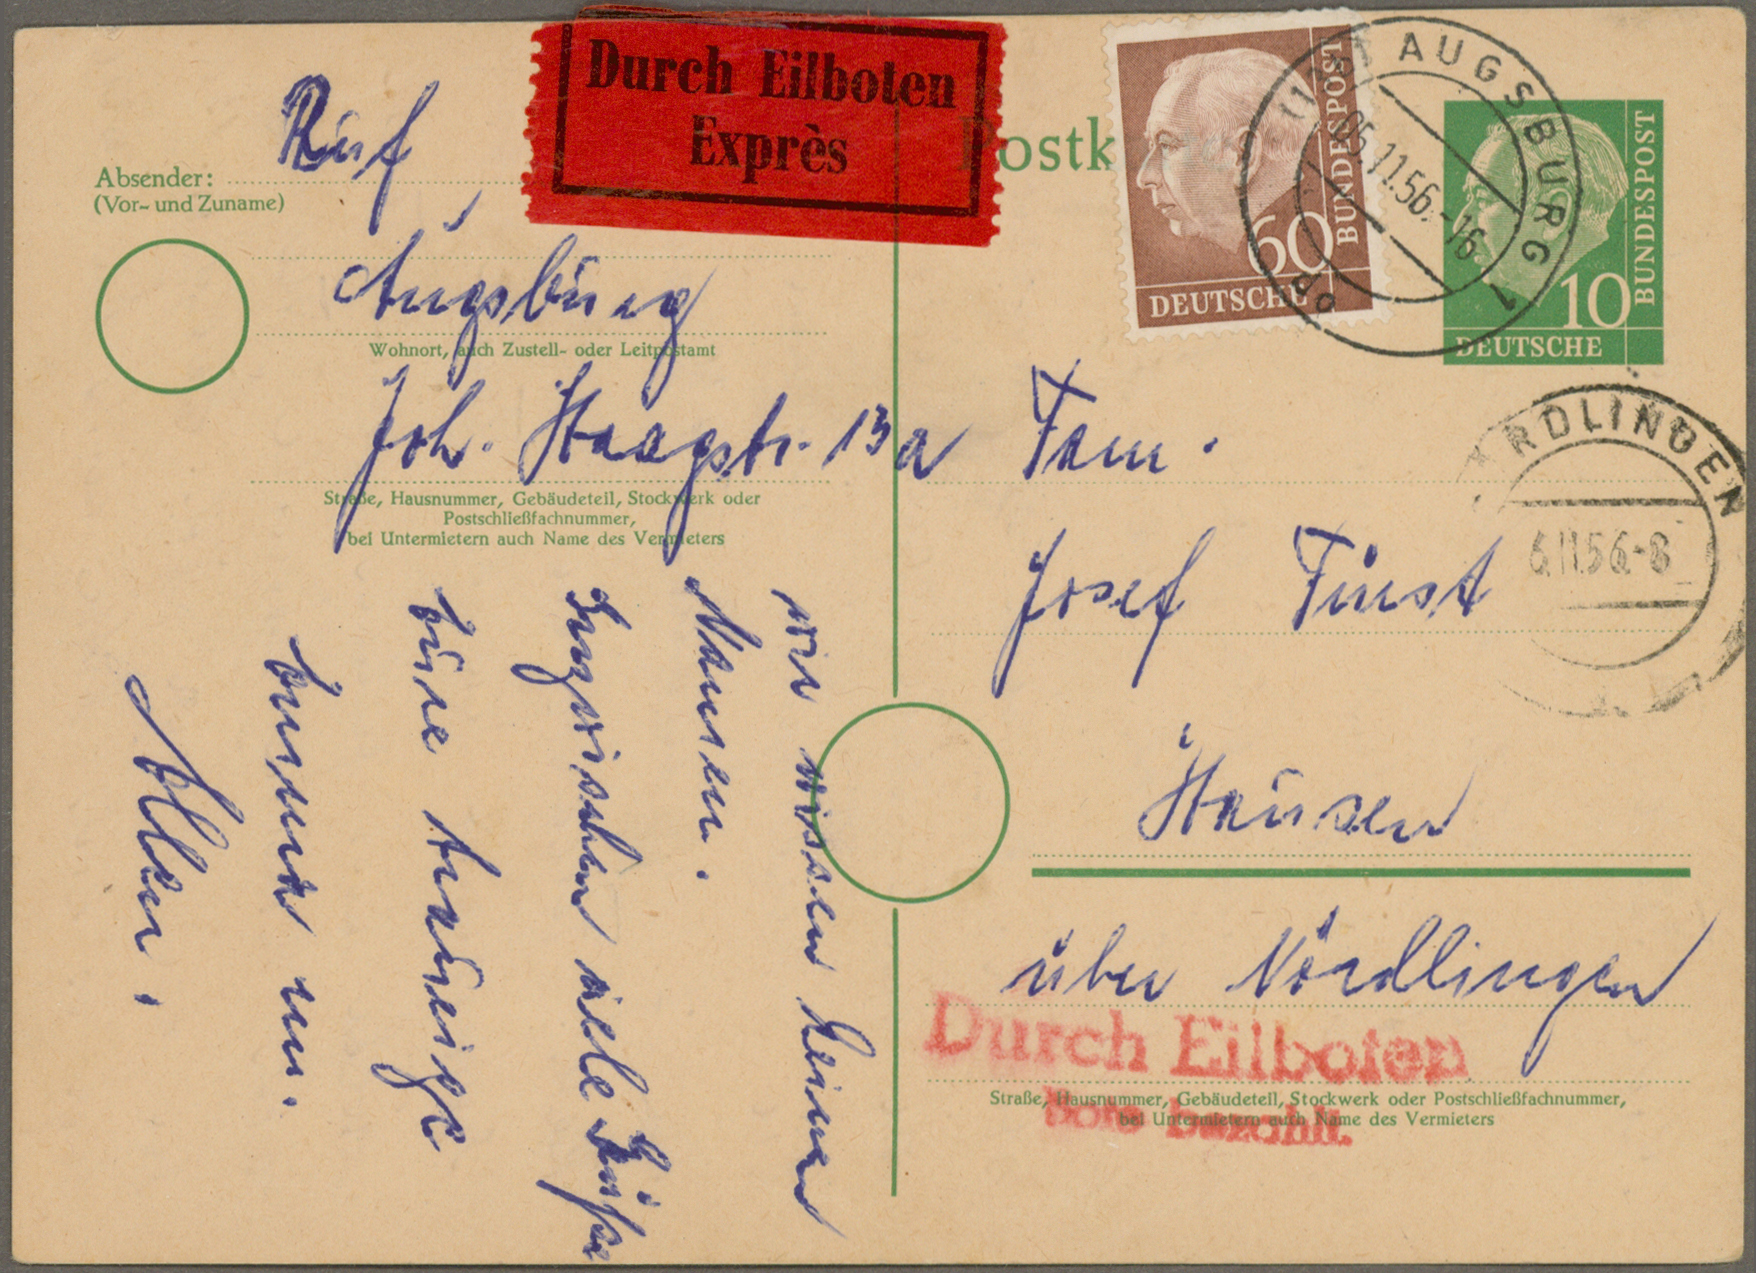 Durch Eilboten
Exprès
Postk
60
DEUTSCHE
BUNDESPOST
AUGSBURG 1
05.11.56.-16
10
DEUTSCHE
BUNDESPOST
NÖRDLINGEN
6.11.56-8
Absender:
(Vor- und Zuname)
Ruf,
Augsburg
Wohnort, auch Zustell- oder Leitpostamt
Joh. Haagstr. 13a
Straße, Hausnummer, Gebäudeteil, Stockwerk oder
Postschließfachnummer,
bei Untermietern auch Name des Vermieters
Fam.
Josef Fürst
Hausen
über Nördlingen
Durch Eilboten
Bote bezahlt.
Straße, Hausnummer, Gebäudeteil, Stockwerk oder Postschließfachnummer,
bei Untermietern auch Name des Vermieters
wir wissen keinen
Namen.
Inzwischen viele Grüße
Eure traurige
Allen.